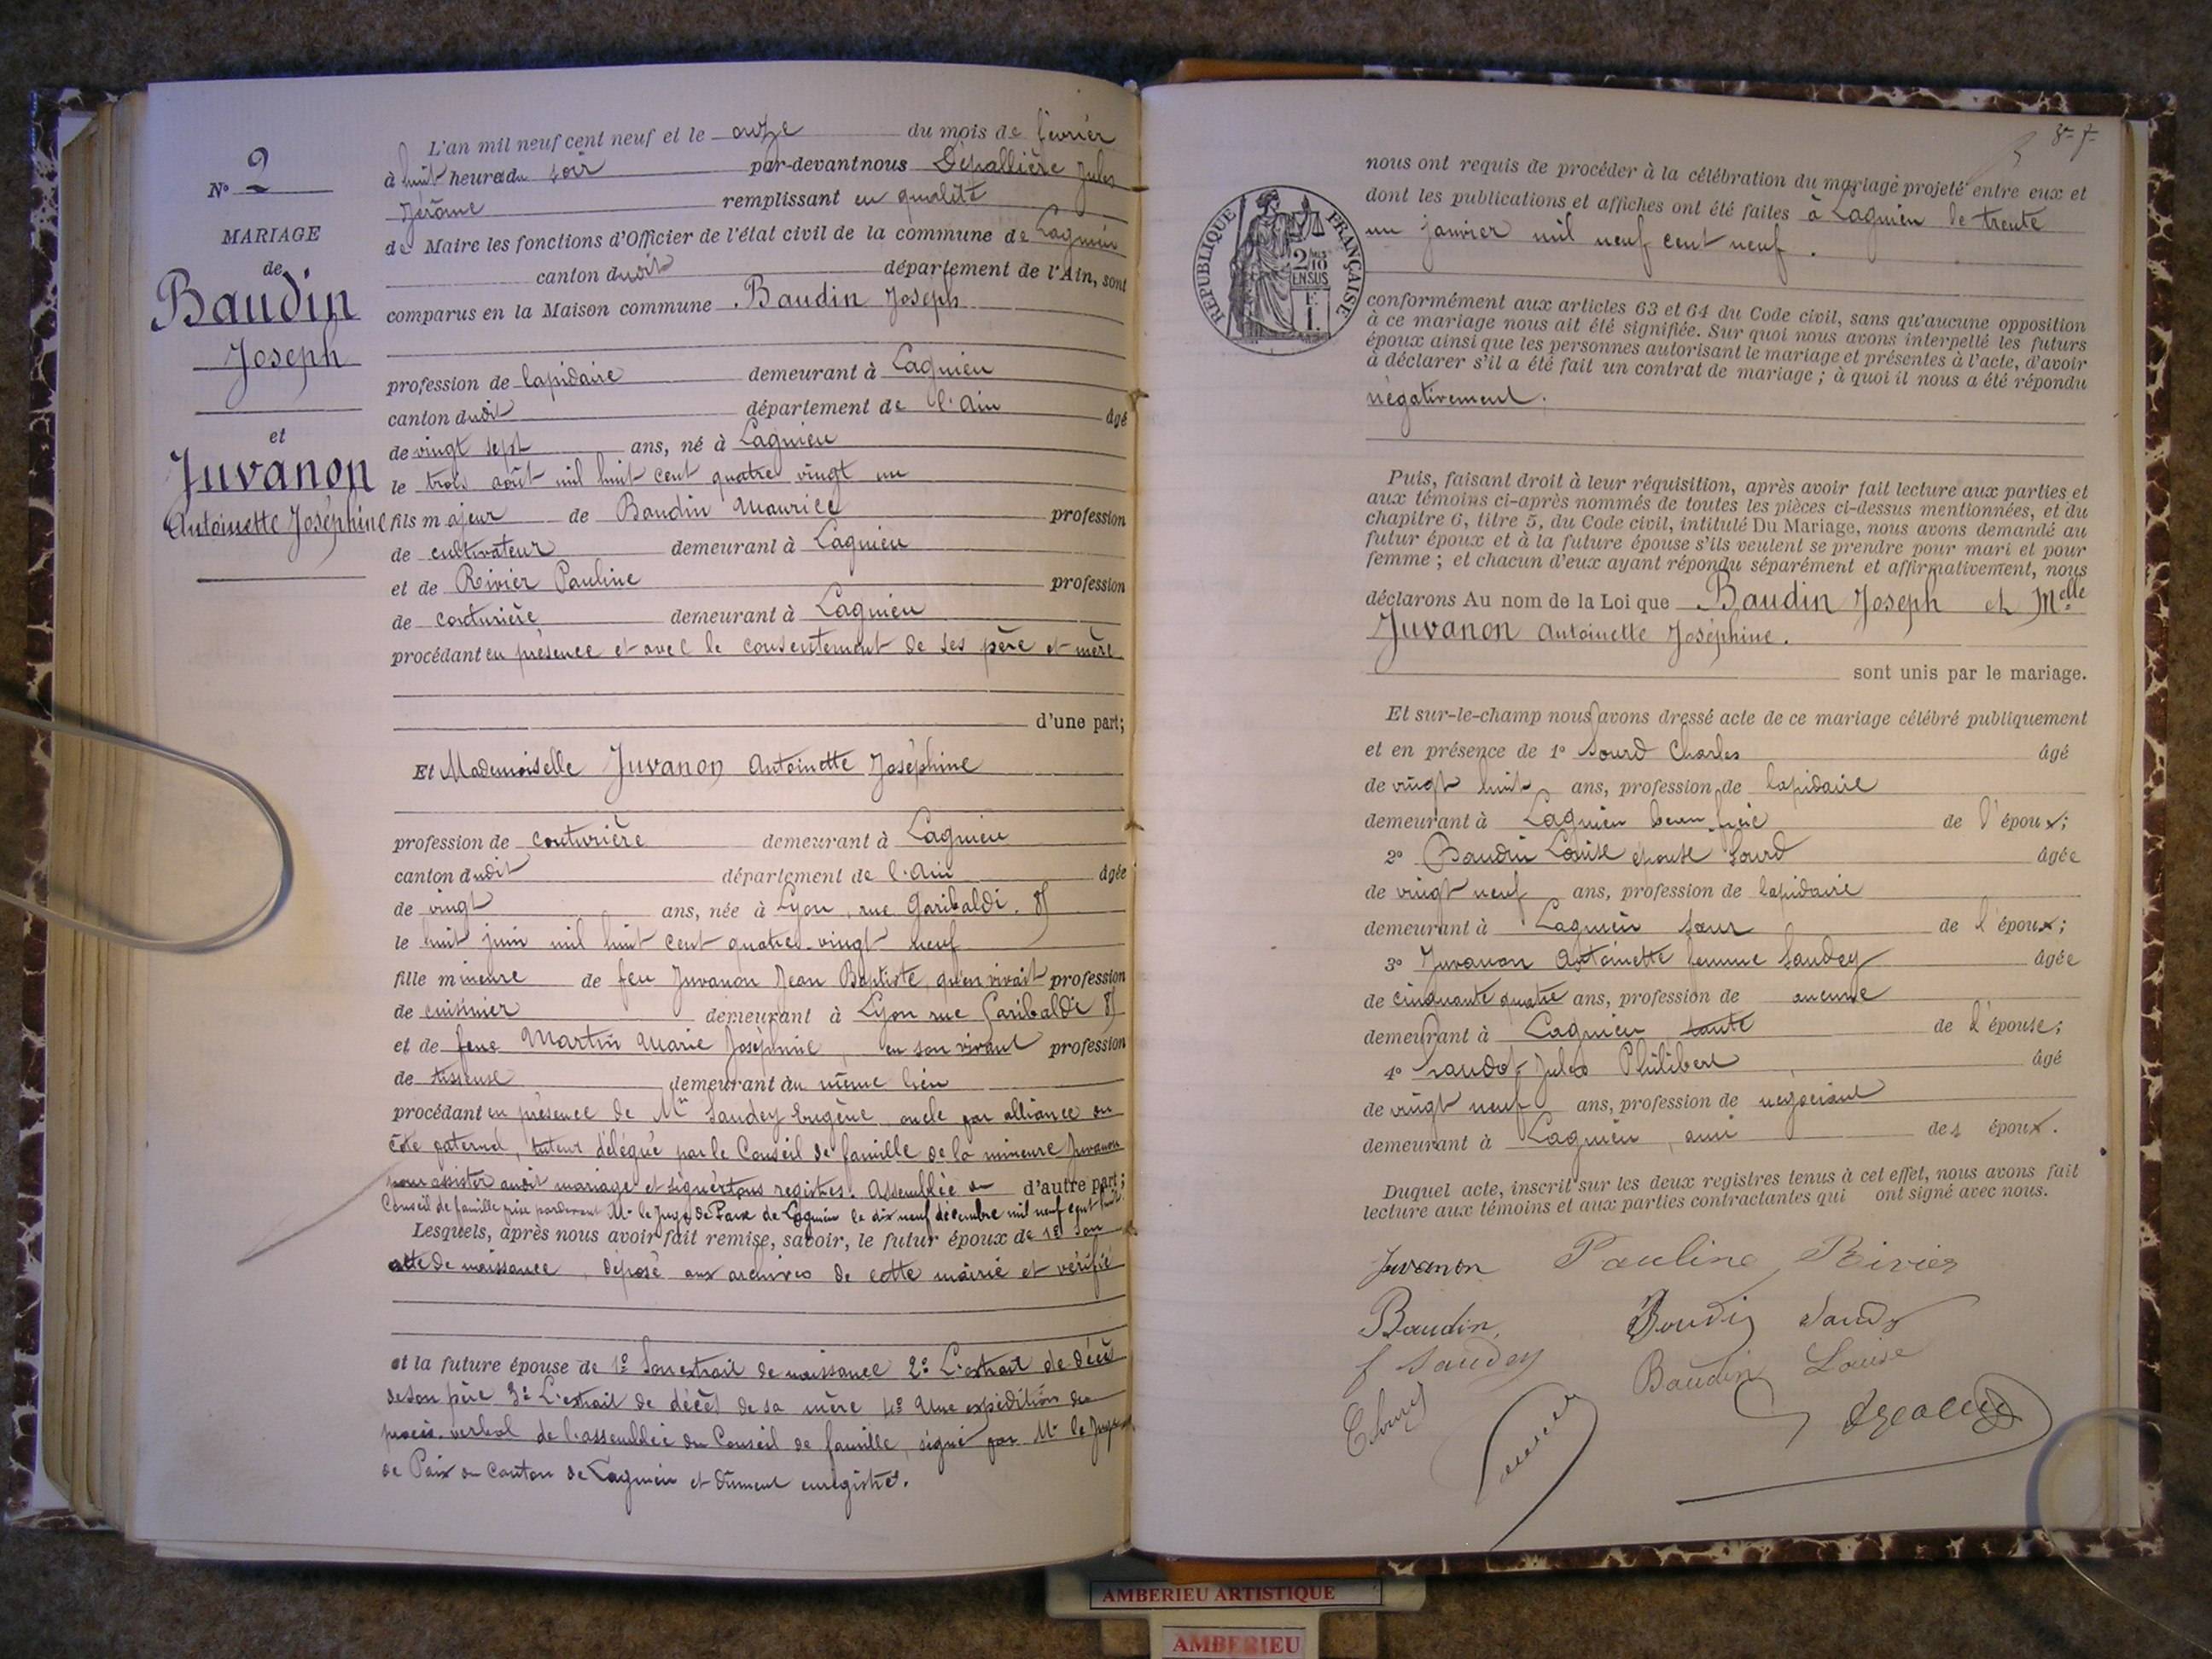 N° 2
MARIAGE
de
Baudin
Joseph
et
Juvanon
Antoinette Joséphine
L'an mil neuf cent neuf et le onze du mois de février
à huit heures du soir par-devant nous Dépallière Jules
Jérôme remplissant en qualité
de Maire les fonctions d'Officier de l'état civil de la commune de Lagnieu
canton dudit département de l'Ain, sont
comparus en la Maison commune . Baudin Joseph
profession de lapidaire demeurant à Lagnieu
canton dudit département de l'Ain âgé
de vingt sept ans, né à Lagnieu
le trois août mil huit cent quatre vingt un
fils majeur de Baudin Maurice profession
de cultivateur demeurant à Lagnieu
et de Rivier Pauline profession
de couturière demeurant à Lagnieu
procédant en présence et avec le consentement de ses père et mère
d'une part;
Et Mademoiselle Juvanon Antoinette Joséphine
profession de couturière demeurant à Lagnieu
canton dudit département de l'Ain âgée
de vingt ans, née à Lyon, rue Garibaldi.
le huit juin mil huit cent quatre-vingt neuf
fille mineure de feu Juvanon Jean Baptiste, qu'en vivait profession
de cuisinier demeurant à Lyon rue Garibaldi
et de feue Martin Marie Joséphine, en son vivant profession
de tisseuse demeurant au même lieu
procédant en présence de Mr Saudey Eugène oncle par alliance du
côté paternel, tuteur délégué par le Conseil de famille de la mineure Juvanon
pour assister audit mariage et signer tous registres. Assemblée du d'autre part;
Conseil de famille prise pardevant Mr le Juge de Paix de Lagnieu le dix neuf décembre mil neuf cent huit
Lesquels, après nous avoir fait remise, savoir, le futur époux de 1° son
acte de naissance, déposé aux archives de cette mairie et vérifié
et la future épouse de 1° Son extrait de naissance 2° L'extrait de décès
de son père 3° L'extrait de décès de sa mère 4° Une expédition du
procès-verbal de l'assemblée du Conseil de famille, signé par Mr le Juge
de Paix du Canton de Lagnieu et dûment enregistré.
nous ont requis de procéder à la célébration du mariage projeté entre eux et
dont les publications et affiches ont été faites à Lagnieu le trente
un janvier mil neuf cent neuf.
RÉPUBLIQUE FRANÇAISE
2/10
EN SUS
conformément aux articles 63 et 64 du Code civil, sans qu'aucune opposition
à ce mariage nous ait été signifiée. Sur quoi nous avons interpellé les futurs
époux ainsi que les personnes autorisant le mariage et présentes à l'acte, d'avoir
à déclarer s'il a été fait un contrat de mariage ; à quoi il nous a été répondu
négativement.
Puis, faisant droit à leur réquisition, après avoir fait lecture aux parties et
aux témoins ci-après nommés de toutes les pièces ci-dessus mentionnées, et du
chapitre 6, titre 5, du Code civil, intitulé Du Mariage, nous avons demandé au
futur époux et à la future épouse s'ils veulent se prendre pour mari et pour
femme ; et chacun d'eux ayant répondu séparément et affirmativement, nous
déclarons Au nom de la Loi que Baudin Joseph et Melle
Juvanon Antoinette Joséphine.
sont unis par le mariage.
Et sur-le-champ nous avons dressé acte de ce mariage célébré publiquement
et en présence de 1° Sourd Charles âgé
de vingt huit ans, profession de lapidaire
demeurant à Lagnieu beau-frère de l'époux;
2° Baudin Louise épouse Sourd âgée
de vingt neuf ans, profession de lapidaire
demeurant à Lagnieu sœur de l'époux;
3° Juvanon Antoinette femme Saudey âgée
de cinquante quatre ans, profession de aucune
demeurant à Lagnieu tante de l'épouse;
4° Jules Philibert âgé
de vingt neuf ans, profession de negociant
demeurant à Lagnieu, ami des époux.
Duquel acte, inscrit sur les deux registres tenus à cet effet, nous avons fait
lecture aux témoins et aux parties contractantes qui ont signé avec nous.
Juvanon Pauline Rivier
Baudin
Saudey Baudin Louise
AMBERIEU ARTISTIQUE
AMBERIEU